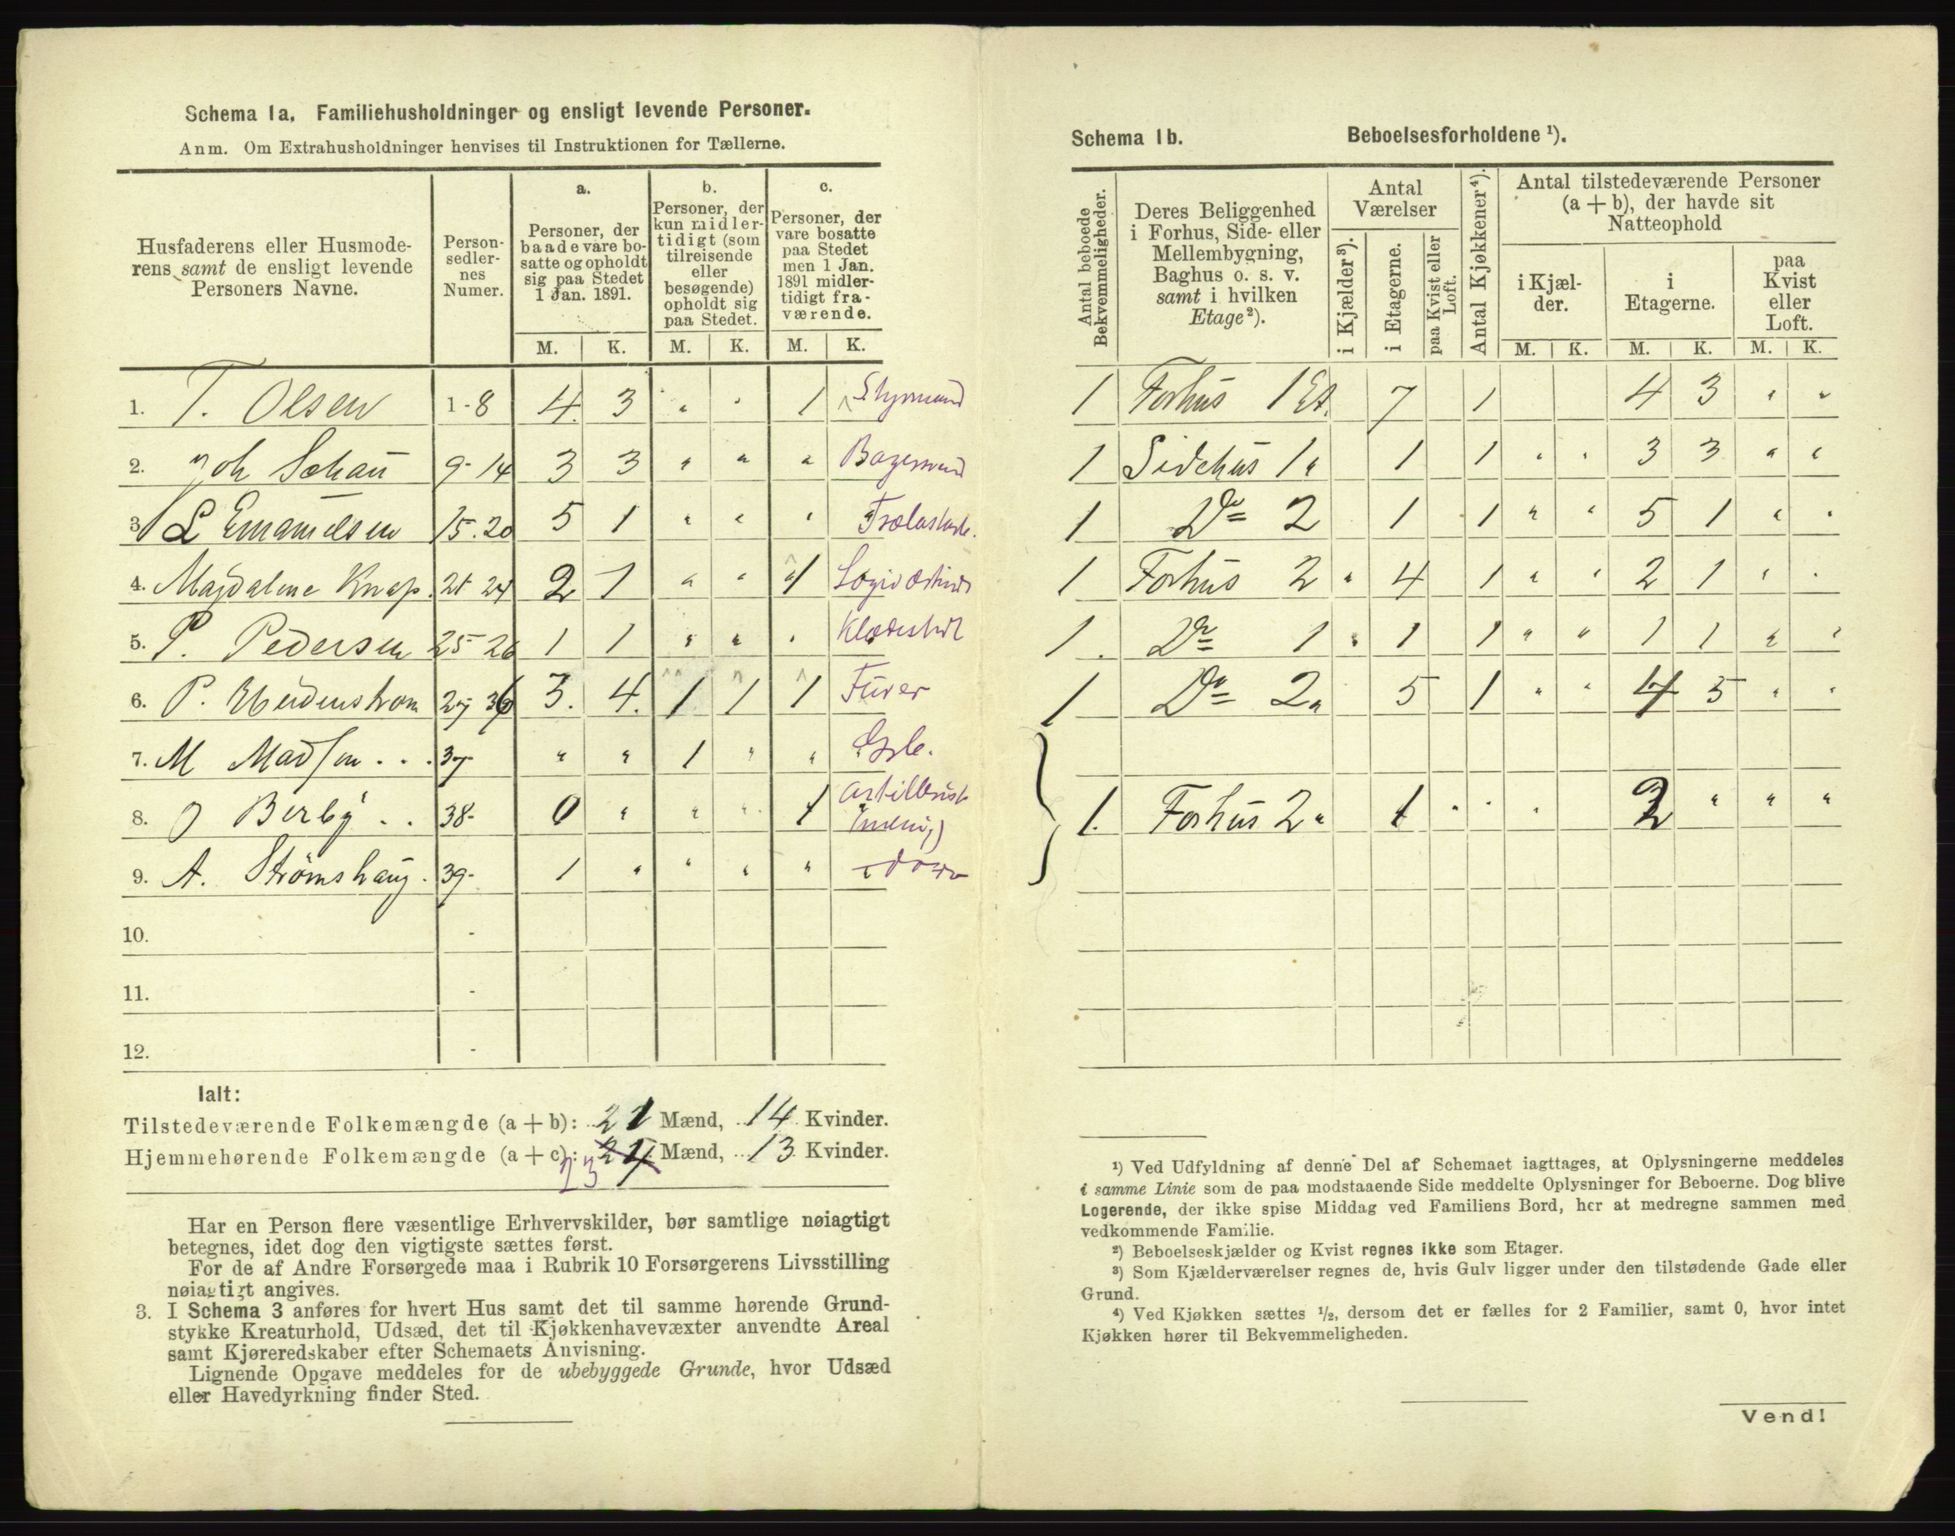 Schema 1a. Familiehusholdninger og ensligt levende Personer.
Anm. Om Extrahusholdninger henvises til Instruktionen for Tællerne.
Husfaderens eller Husmode-
rens samt de ensligt levende
Personers Navne.
Person-
sedler-
nes
Numer.
a.
Personer, der
baade vare bo-
satte og opholdt
sig paa Stedet
1 Jan. 1891.
b.
Personer, der
kun midler-
tidigt (som
tilreisende
eller
besøgende)
opholdt sig
paa Stedet.
c.
Personer, der
vare bosatte
paa Stedet
men 1 Jan.
1891 midler-
tidigt fra-
værende.
M. K. M. K. M. K.
1. T. Olsen 1-8 4 3 " " 1 Styrmand
2. Joh Schau 9-14 3 3 " " "
3 L Emanuelsen 15-20 5 1 " " "
4. Magdalene Knap. 21 24 2 1 " " 1
5. P. Pedersen 25-26 1 1 " " "
6. P. 3. 4. 1 1 1
7. M Madsen . . . 37 " " 1 " "
8. J Berby . . 38- 0 " " " 1
9. A. Strømshaug . 39- 1 " " " "
10.
11.
12.
Ialt:
Tilstedeværende Folkemængde (a + b): 21 Mænd, 14 Kvinder.
Hjemmehørende Folkemængde (a + c): 23 Mænd, 13 Kvinder.
Har en Person flere væsentlige Erhvervskilder, bør samtlige nøiagtigt
betegnes, idet dog den vigtigste sættes først.
For de af Andre Forsørgede maa i Rubrik 10 Forsørgerens Livsstilling
nøiagtigt angives.
3. I Schema 3 anføres for hvert Hus samt det til samme hørende Grund-
stykke Kreaturhold, Udsæd, det til Kjøkkenhavevæxter anvendte Areal
samt Kjøreredskaber efter Schemaets Anvisning.
Lignende Opgave meddeles for de ubebyggede Grunde, hvor Udsæd
eller Havedyrkning finder Sted.
Schema 1b. Beboelsesforholdene ¹).
Antal beboede
Bekvemmeligheder.
Deres Beliggenhed
i Forhus, Side- eller
Mellembygning,
Baghus o. s. v.
samt i hvilken
Etage²).
Antal
Værelser
i Kjælder³).
i Etagerne.
paa Kvist eller
Loft.
Antal Kjøkkener⁴).
Antal tilstedeværende Personer
(a + b), der havde sit
Natteophold
i Kjæl-
der.
i
Etagerne.
paa
Kvist
eller
Loft.
M. K. M. K. M. K.
1 Forhus 1 Et. 7 1 4 3 " "
1 Sidehus 1 " 1 1 " " 3 3 " "
1 Do 2 1 1 " " 5 1 " "
1 Forhus 2 " 4 1 " " 2 1 " "
1. Do 1 " 1 1 " " 1 1 " "
1 Do 2 " 5 1 " " 4 5 " "
1. Forhus 2 " 1 " " " 2 " " "
¹) Ved Udfyldning af denne Del af Schemaet iagttages, at Oplysningerne meddeles
i samme Linie som de paa modstaaende Side meddelte Oplysninger for Beboerne. Dog blive
Logerende, der ikke spise Middag ved Familiens Bord, her at medregne sammen med
vedkommende Familie.
²) Beboelseskjælder og Kvist regnes ikke som Etager.
³) Som Kjælderværelser regnes de, hvis Gulv ligger under den tilstødende Gade eller
Grund.
⁴) Ved Kjøkken sættes ½, dersom det er fælles for 2 Familier, samt 0, hvor intet
Kjøkken hører til Bekvemmeligheden.
Vend!